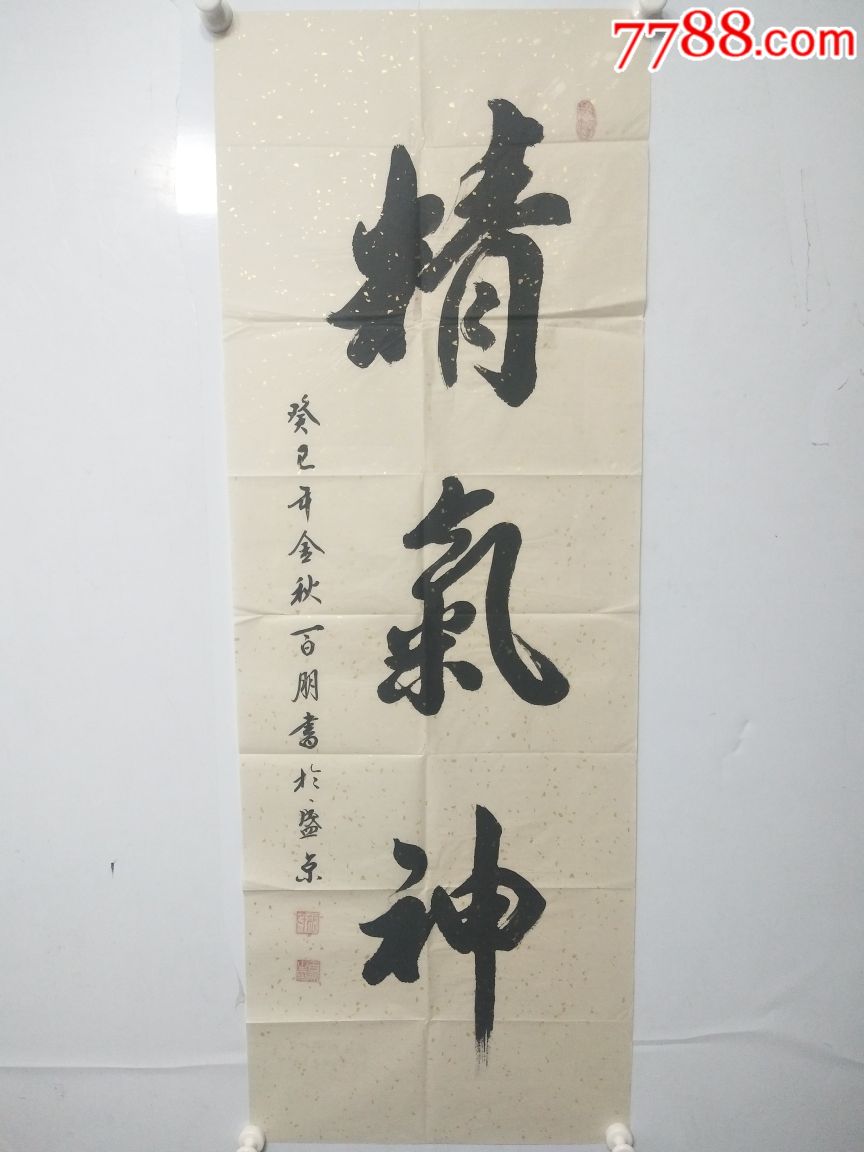 7788.com
精氣神
癸巳年金秋百朋書於盛京